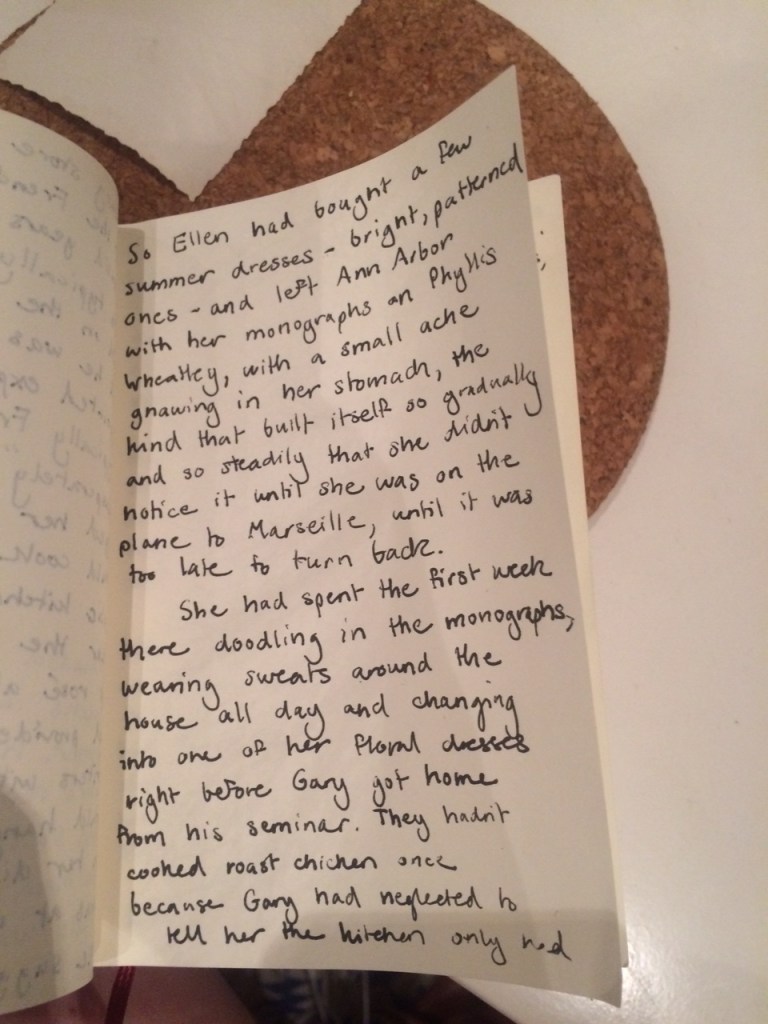 So Ellen had bought a few
summer dresses - bright, patterned
ones - and left Ann Arbor
with her monographs on Phyllis
Wheatley, with a small ache
gnawing in her stomach, the
kind that built itself so gradually
and so steadily that she didn't
notice it until she was on the
plane to Marseille, until it was
too late to turn back.
She had spent the first week
there doodling in the monographs,
wearing sweats around the
house all day and changing
into one of her floral dresses
right before Gary got home
from his seminar. They hadn't
cooked roast chicken once
because Gary had neglected to
tell her the kitchen only had